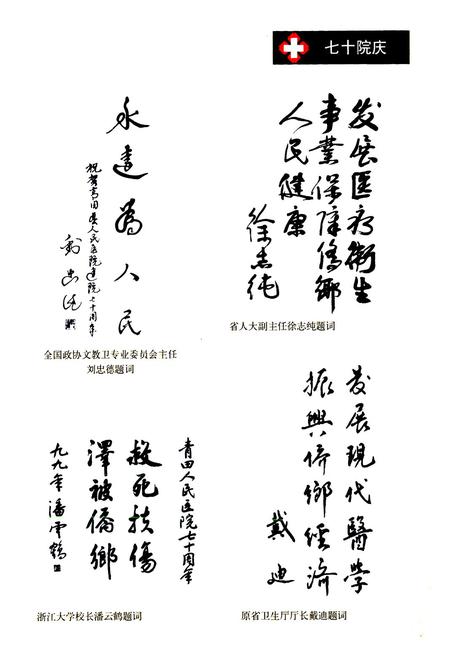 七十院庆
永远为人民
祝贺青田县人民医院建院七十周年
刘忠德
全国政协文教卫专业委员会主任
刘忠德题词
发展医疗衛生
事業保障僑鄉
人民健康
徐志纯
省人大副主任徐志纯题词
青田人民医院七十周年
救死扶傷
澤被僑鄉
九九年潘雲鶴
浙江大学校长潘云鹤题词
發展現代醫學
振興僑鄉經濟
戴迪
原省卫生厅厅长戴迪题词